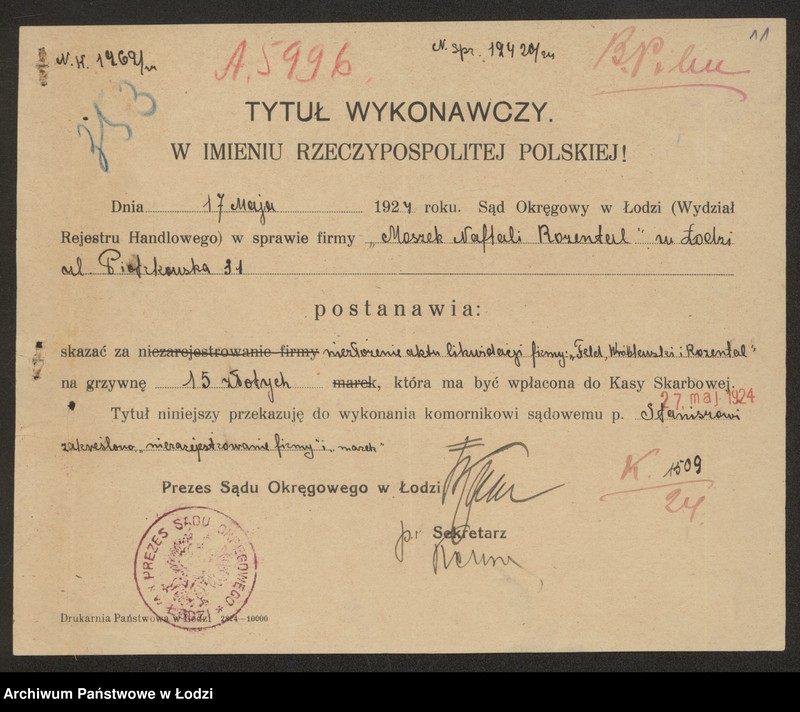 N. H. 1969/24
A. 5996
N. spr. 19420/24
11
353
TYTUŁ WYKONAWCZY.
W IMIENIU RZECZYPOSPOLITEJ POLSKIEJ!
Dnia 17 Maja 1924 roku. Sąd Okręgowy w Łodzi (Wydział
Rejestru Handlowego) w sprawie firmy „Moszek Naftali Rozental" w Łodzi
ul. Piotrkowska 31
postanawia:
skazać za niezarejestrowanie firmy niezłożenie aktu likwidacji firmy: „Feld, Wróblewski i Rozental"
na grzywnę 15 złotych marek, która ma być wpłacona do Kasy Skarbowej.
27. maj. 1924
Tytuł niniejszy przekazuję do wykonania komornikowi sądowemu p.
zakreślono „niezarejestrowanie firmy" i „marek"
K. 1509
24.
Prezes Sądu Okręgowego w Łodzi
Sekretarz
PREZES SĄDU OKRĘGOWEGO
W ŁODZI
Drukarnia Państwowa w Łodzi 2824—10000
Archiwum Państwowe w Łodzi